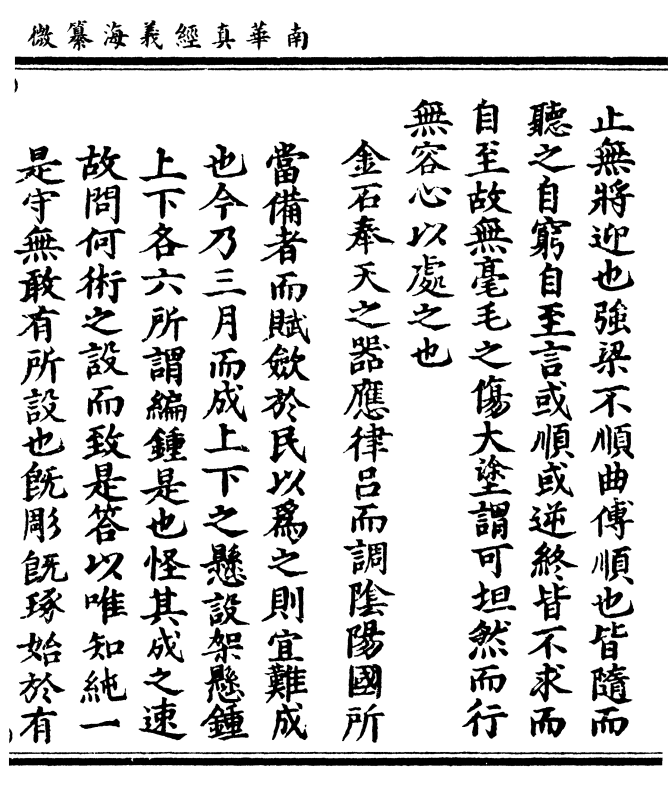 南華真經義海纂微
止無將迎也強梁不順曲傅順也皆隨而
聽之自窮自至言或順或逆終皆不求而
自至故無毫毛之傷大塗謂可坦然而行
無容心以處之也
金石奉天之器應律呂而調陰陽國所
當備者而賦斂於民以爲之則宜難成
也今乃三月而成上下之懸設架懸鍾
上下各六所謂編鍾是也怪其成之速
故問何術之設而致是答以唯知純一
是守無敢有所設也旣彫旣琢始於有